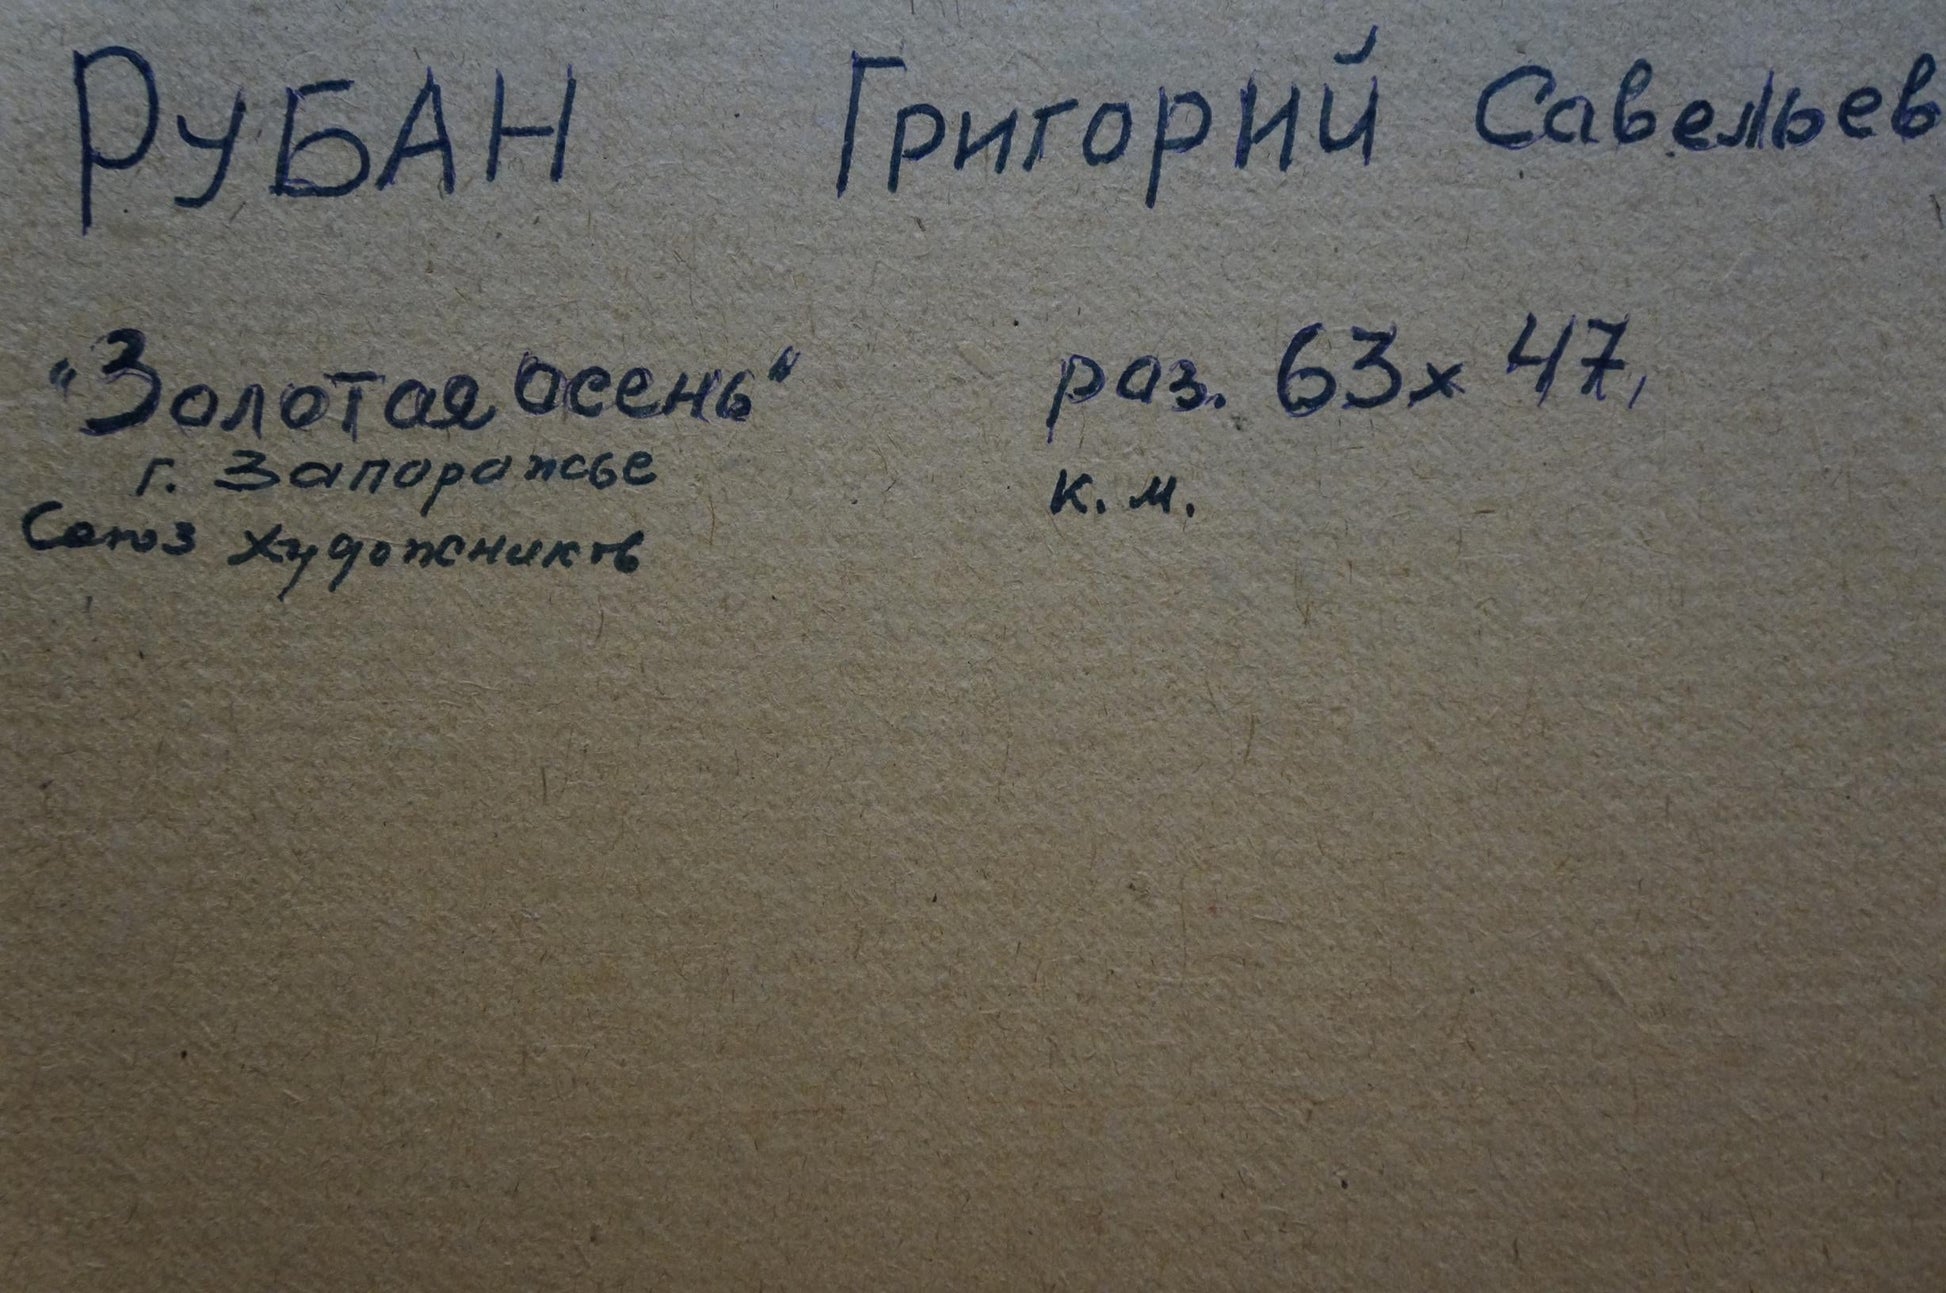 РУБАН Григорий Савельев
"Золотая осень" раз. 63х 47,
г. Запоражье к. м.
Союз художников